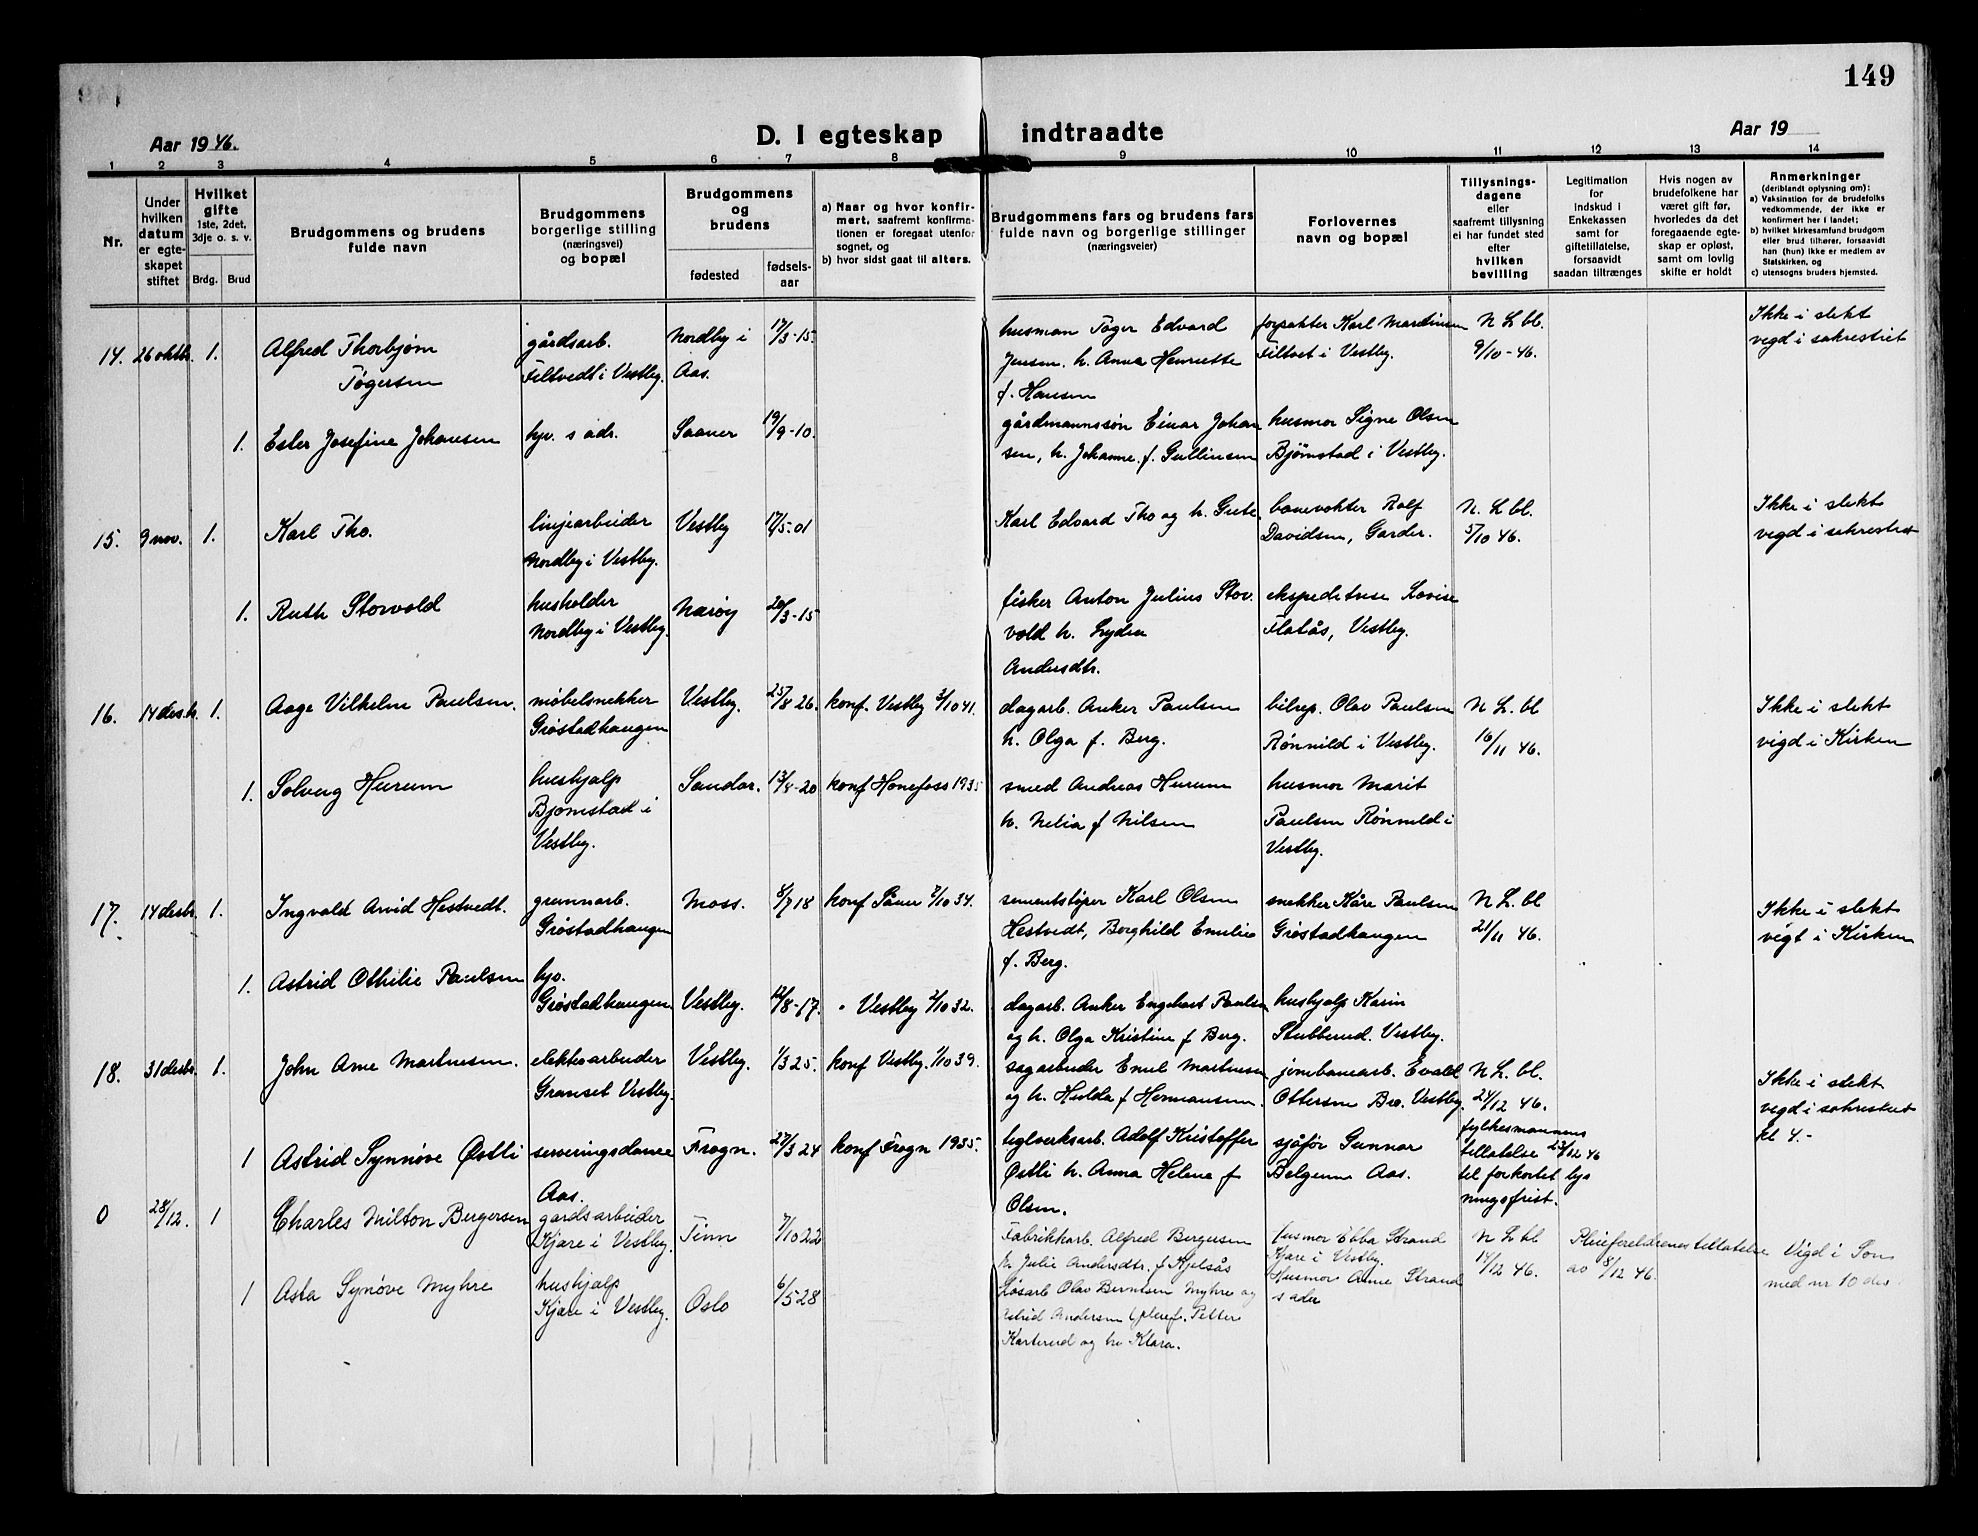 149
Aar 1946.
D. I egteskap indtraadte
Aar 19
1 2 3 4 5 6 7 8 9 10 11 12 13 14
Nr.
Under hvilken datum er egteskapet stiftet
Hvilket gifte
1ste, 2det, 3dje o. s. v.
Brdg. Brud
Brudgommens og brudens fulde navn
Brudgommens borgerlige stilling (næringsvei) og bopæl
Brudgommens og brudens
fødested
fødsels-aar
a) Naar og hvor konfirmert, saafremt konfirmationen er foregaat utenfor sognet, og
b) hvor sidst gaat til alters.
Brudgommens fars og brudens fars fulde navn og borgerlige stillinger (næringsveier)
Forlovernes navn og bopæl
Tillysningsdagene eller saafremt tillysning ei har fundet sted efter hvilken bevilling
Legitimation for indskud i Enkekassen samt for giftetillatelse, forsaavidt saadan tiltrænges
Hvis nogen av brudefolkene har været gift før, hvorledes da det foregaaende egteskap er opløst, samt om lovlig skifte er holdt
Anmerkninger
(deriblandt oplysning om):
a) Vaksination for de brudefolks vedkommende, der ikke er konfirmert her i landet;
b) hvilket kirkesamfund brudgom eller brud tilhører, forsaavidt han (hun) ikke er medlem av Statskirken, og
c) utensogns bruders hjemsted.
14. 26 oktb. 1. Alfred Thorbjørn Tøgersen
gårdsarb. Filtvedt i Vestby.
Nordby i Aas.
17/3-15.
husman Tøger Edvard Jensen. h. Anna Henriette f. Hansen
forpakter Karl Martinsen Filtvet i Vestby.
N L bl. 9/10-46.
Ikke i slekt vegd i sakrestiet
1. Ester Josefine Johansen
hjv. s adr.
Saaner
19/9-10.
gårdmannssøn Einar Johansen, h. Johanne f. Gullinsen
husmor Signe Olsen Bjørnstad i Vestby.
15. 9 nov. 1. Karl Tho.
linjearbeider Nordby i Vestby.
Vestby
17/5-01
Karl Edvard Tho og h. Gute
banevokter Rolf Davidsen, Garder.
N. L bl. 5/10 46.
Ikke i slekt vegd i sakrestiet
1. Ruth Storvold
husholder Nordby i Vestby.
Nærøy
20/3-15
fisker Anton Julius Storvold h. Lyden Andersdtr.
ekspeditrise Lovise Flatås, Vestby.
16. 14 desb. 1. Aage Vilhelm Paulsen.
møbelsnekker Grøstadhaugen
Vestby.
25/8 26.
konf. Vestby 3/10 41.
dagarb. Anker Paulsen h. Olga f. Berg.
bilrep. Olav Paulsen Rønnild i Vestby.
N L. bl 16/11 46.
Ikke i slekt vigd i Kirken
1. Solveig Hurum
hushjalp Bjørnstad i Vestby.
Sandar.
13/8-20
konf Hønefoss 1935
smed Andreas Hurum h. Nelia f Nilsen
husmor Marit Paulsen Rønnild i Vestby.
17. 14 desbr. 1. Ingvald Arvid Hestvedt.
grunnarb. Grøstadhaugen
Moss.
8/7 18
konf Såner 7/10 34.
sementstøper Karl Olsen Hestvedt, Borghild Emilie f. Berg.
snekker Kåre Paulsen Grøstadhaugen
N L. bl 21/11 46.
Ikke i slekt vigt i Kirken
1. Astrid Othilie Paulsen
hjv. Grøstadhaugen
Vestby.
12/8-17.
" Vestby 2/10 32.
dagarb. Anker Engebart Paulsen og h. Olga Kristine f Berg.
hushjalp Karin Stubberud. Vestby.
18. 31 desbr. 1. John Arne Martinsen.
elektroarbeider Granset Vestby.
Vestby.
1/3 25.
konf Vestby. 1/10 39.
sagarbeider Emil Martinsen og h. Hulda f Hermansen.
jernbanearb. Evald Ottersen Bro. Vestby.
N L. bl. 21/12 46.
fylkesmannens tillatelse 23/12 46 til forkortet lysningsfrist.
Ikke i slekt vegd i sakrestiet kl 4.-
1 Astrid Synnøve Østli
serveringsdame Aas.
Frogn.
27/3 24
konf Frogn 1935.
teglverksarb. Adolf Kristoffer Østli h. Anna Helene f Olsen.
sjåfør Gunnar Belgum Aas.
0 28/12. 1 Charles Milton Bergersen
gardsarbeider Kjøre i Vestby.
Tinn
7/10 22
Fabrikkarb. Alfred Bergersen h. Julie Andersdtr. f Kjelsås
Husmor Ebba Strand Kjære i Vestby.
N L bl 14/12 46.
Pleieforeldrenes tillatelse av 8/12 46.
Vigd i Son med nr 10 der
1 Asta Synøve Myhre
hushjalp Kjære i Vestby.
Oslo
6/5 28
Løsarb Olav Berntsen Myhre og Astrid Andersen (pleief. Petter Karterud og hv Klara.
Husmor Anne Strand s adr